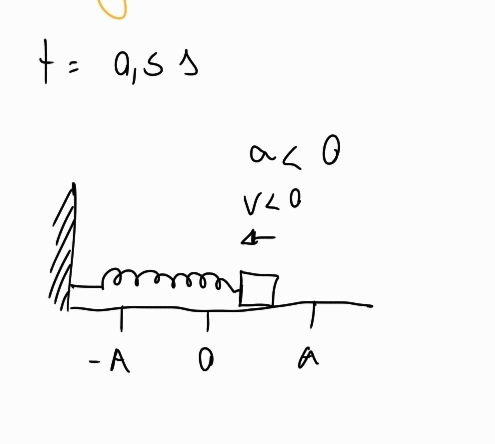 t = 0,5 s
a < 0
v < 0
-A 0 A